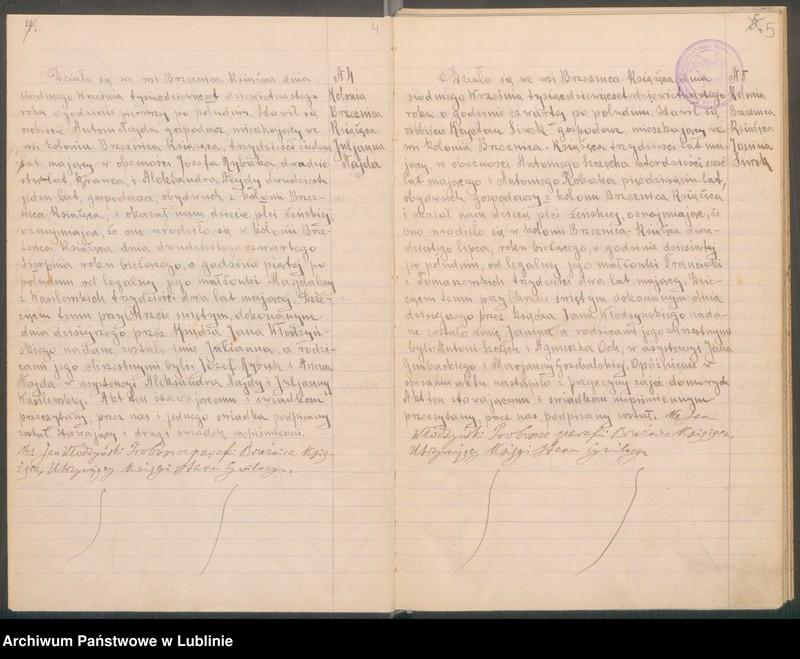 4.
4
Działo się we wsi Brzeznica Książęca, dnia
siódmego Września tysiącdziewięćset dziewiętnastego
roku o godzinie pierwszej po południu. Stawił się
osobiście Antoni Najda gospodarz, mieszkający we
wsi kolonia Brzeznica Książęca, trzydzieści siedem
lat mający w obecności Józefa dwadzie-
lat, krawca, i Aleksandra Najdy dwudziestu
jeden lat, gospodarza, obydwóch z kolonii Brzez-
nica Książęca, i okazał nam dziecię płci żeńskiej
oznajmiając, że ono urodziło się w kolonii Brze-
źnica Książęca dnia dwudziestego czwartego
Sierpnia roku bieżącego, o godzinie piątej po
południu od legalnej jego małżonki Magdaleny
z Wasilewskich trzydzieści dwa lat mającej. Dzie-
cięciu temu przy Chrzcie świętym, dokonanym
dnia dzisiejszego przez Księdza Jana Włodzyń-
skiego nadane zostało imię Julianna, a rodzi-
cami jego chrzestnymi byli: Józef i Anna
Najda w asystencji Aleksandra Najdy i Julianny
Wasilewskiej. Akt ten stawającemu i świadkom
przeczytany, przez nas i jednego świadka podpisany
został, stawający i drugi świadek niepiśmienni.
Ks. Jan Włodzyński Proboszcz parafii Brzeźnica Ksią-
żęca, Utrzymujący księgi stanu Cywilnego.
N 4
Kolonia
Brzeznica
Książęca
Juljanna
Najda
5
Działo się we wsi Brzeznica Książęca, dnia
siódmego Września tysiącdziewięćset dziewiętnastego
roku o godzinie czwartej po południu. Stawił się
osobiście Kajetan Siwek gospodarz, mieszkający we
wsi kolonia Brzeznica-Książęca, trzydzieści lat ma-
jący, w obecności Antoniego czterdzieści sześć
lat mającego i Antoniego Robaka pięćdziesiąt lat,
obydwóch gospodarzy z kolonii Brzeznica Książęca
i okazał nam dziecię płci żeńskiej, oznajmiając, że
ono urodziło się w kolonii Brzeznica-Książęca dwu-
dziestego lipca, roku bieżącego, o godzinie dziesiątej
po południu, od legalnej jego małżonki Franciszki
z Tomaszewskich trzydzieści dwa lat mającej. Dzie-
cięciu temu przy Chrzcie świętym dokonanym dnia
dzisiejszego przez księdza Jana Włodzyńskiego nada-
ne zostało imię Janina, a rodzicami jego chrzestnymi
byli: Antoni i Agnieszka Och, w asystencji Jana
i Marjanny Grzebalskiej. Opóźnienie w
spisaniu aktu nastąpiło z przyczyny zajęć domowych
Akt ten stawającemu i świadkom niepiśmiennym
przeczytany, przez nas podpisany został. Ks. Jan
Włodzyński Proboszcz parafii Brzeźnica Książęca,
Utrzymujący Księgi Stanu Cywilnego
N 5
Kolonia
Brzeznica
Książęca
Janina
Siwek
Archiwum Państwowe w Lublinie